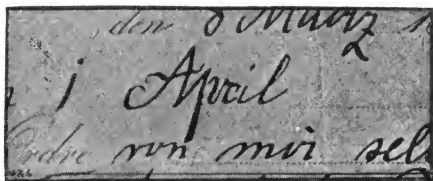 den 8 März
1 April
Ordre von mir sel